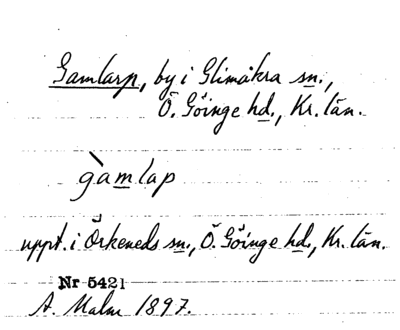 Gamlarp, by i Glimåkra sn.,
Ö. Göinge hd., Kr. län.
gàmlap
uppt. i Örkeneds sn., Ö. Göinge hd., Kr. län.
Nr 5421
A. Malm 1897.